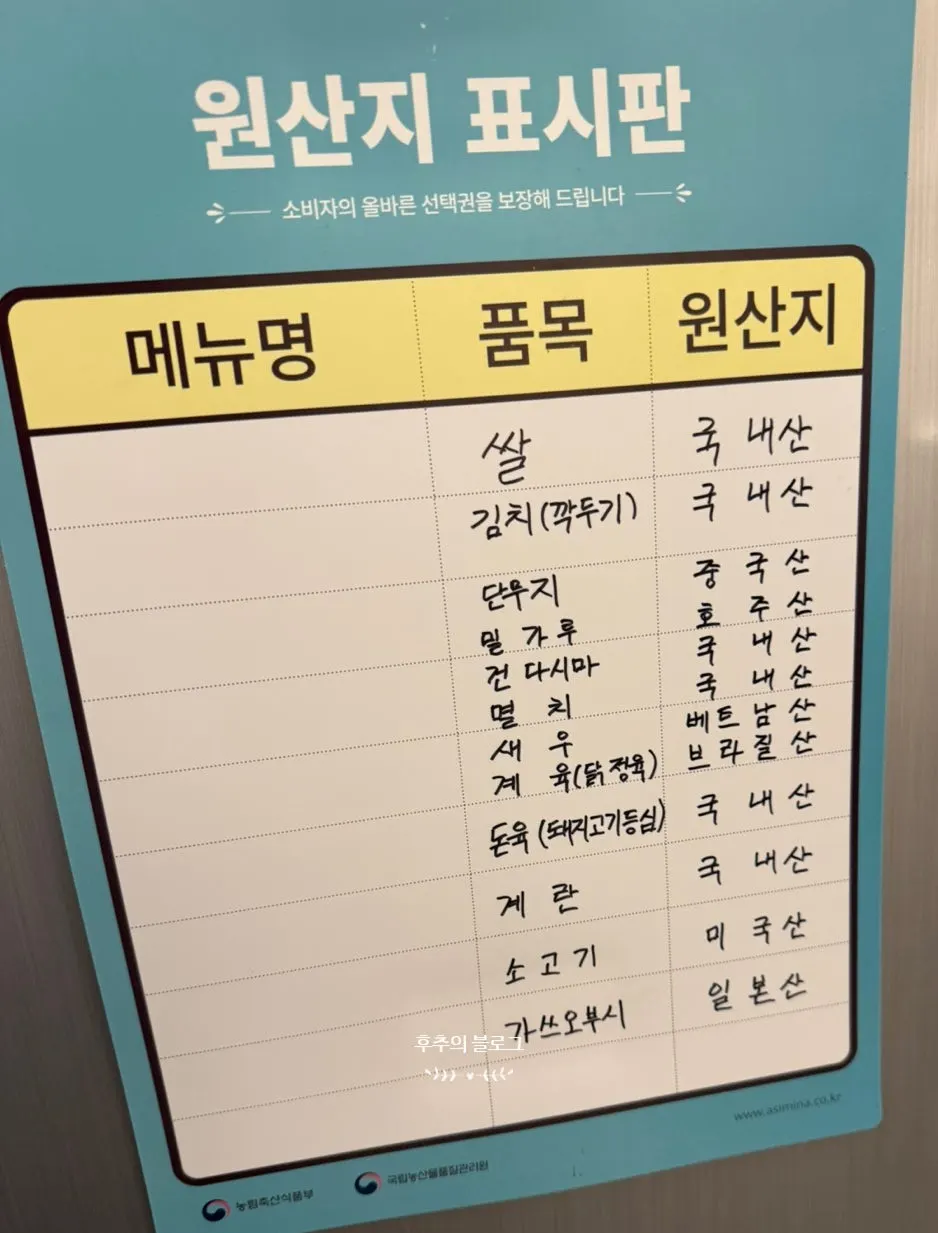 원산지 표시판
소비자의 올바른 선택권을 보장해 드립니다
메뉴명 품목 원산지
쌀 국내산
김치(깍두기) 국내산
단무지 중국산
밀가루 호주산
건다시마 국내산
멸치 국내산
새우 베트남산
계육(닭정육) 브라질산
돈육(돼지고기등심) 국내산
계란 국내산
소고기 미국산
가쓰오부시 일본산
후추의 블로그
www.asimina.co.kr
농림축산식품부 국립농산물품질관리원